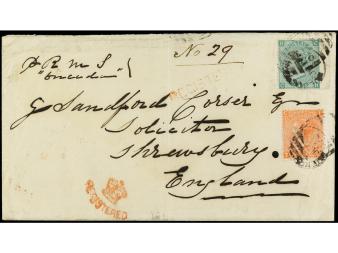 p R M S
"Oneida"
No 29
REGISTERED
G Sandford Corser Esq
Solicitor
Shrewsbury
England
REGISTERED